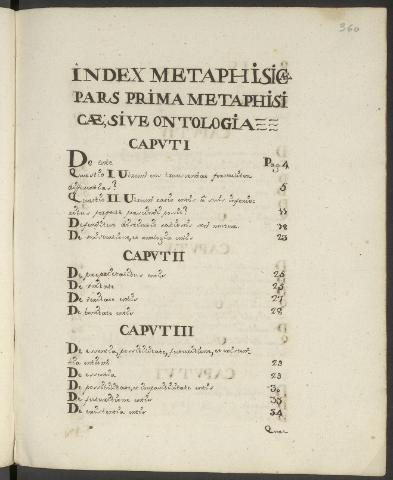 360
INDEX METAPHISICÆ
PARS PRIMA METAPHISI
CÆ, SIVE ONTOLOGIA
CAPUT I
De ente Pag. 4
Quæstio I. Utrum ens transcendat
differentias? 5
Quæstio II. Utrum ratio entis
possit? 11
18
De entis 23
CAPUT II
De proprietatibus entis 25
De unitate 25
De veritate entis 27
De bonitate entis 28
CAPUT III
De essentia, possibilitate, et existen
tia entium 29
De essentia 29
De possibilitate, et impossibilitate entis 30
De entis 33
De existentia entis 34
Quæs